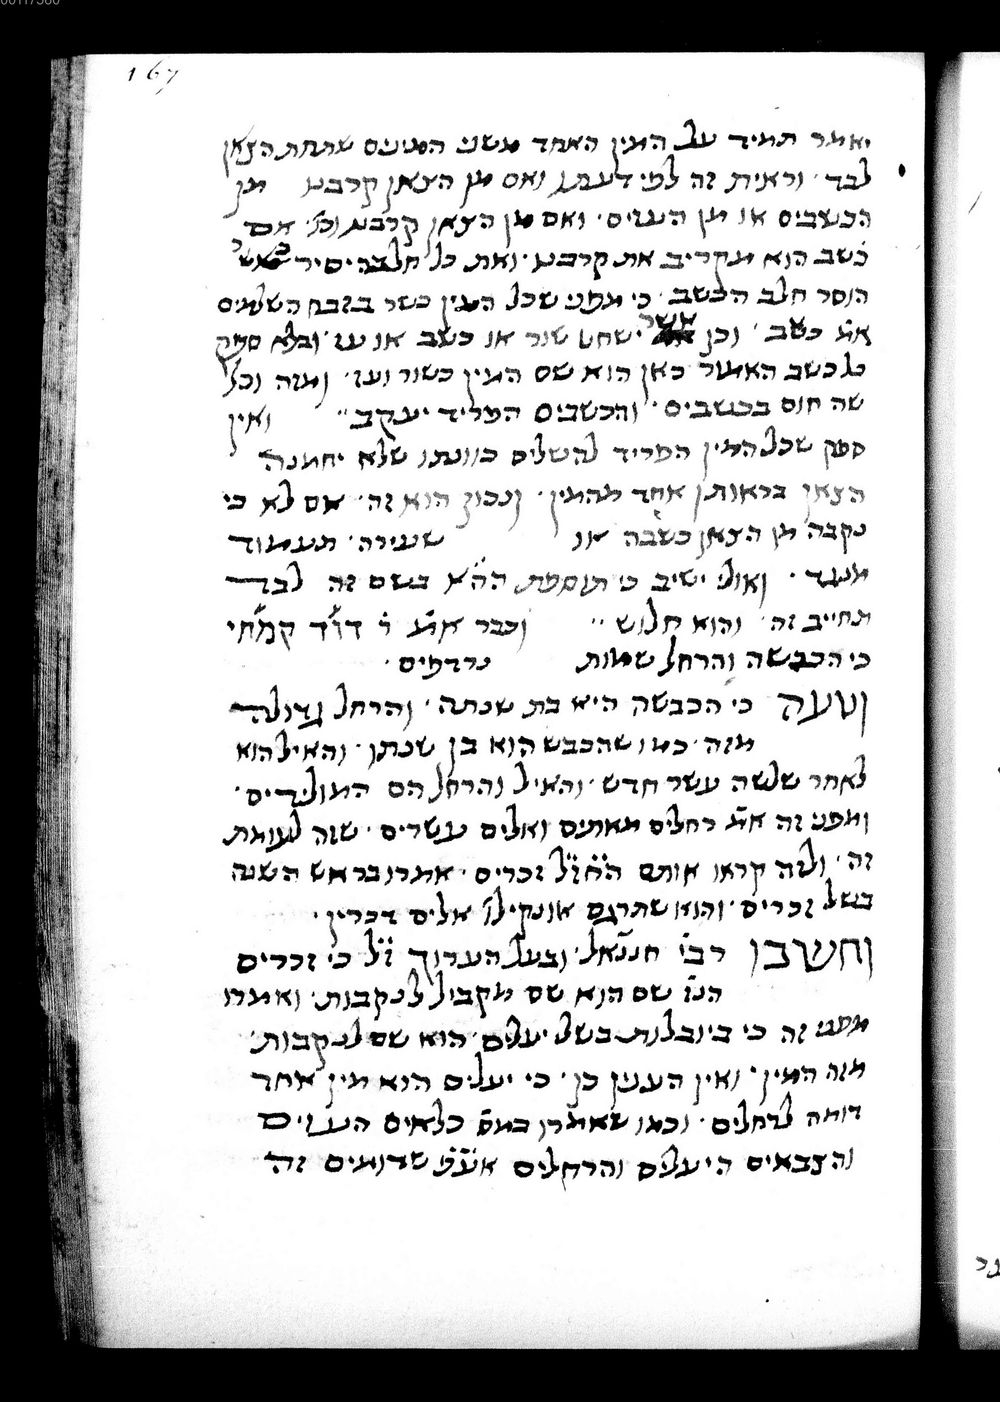 167
יאמר תמיד על המין האחד משני המינים שתחת הצאן
לבד· וראית זה למי דעתו ואם מן הצאן קרבנו מן
הכשבים או מן העזים· ואם מן הצאן קרבנו וכו׳ אם
כשב הוא מקריב את קרבנו· ואת כל חלבה יסיר כאשר
הוסר חלב הכשב· כי מפני שכל המין כשר בזבח השלמים
אמ׳ כשב· וכן אשר ישחט שור או כשב או עז· ובלא ספק
כל כשב האמור כאן הוא שם המין כשור ועז· ומזה וכל
שה חום בכשבים· והכשבים הפריד יעקב·· ואין
ספק שכל המין הפריד להשלים כוונתו שלא יחמנה
הצאן בראותן אחד מהמין· ונכון הוא זה· אם לא כי
נקבה מן הצאן כשבה או שעירה· תעמוד
מנגד· ואולי ישיב כי תוספת הה״א בשם זה לבד
תחייב זה· והוא חלוש·· וכבר אמ׳ ר׳ דוד קמחי
כי הכבשה והרחל שמות נרדפים·
וטעה כי הכבשה היא בת שנתה· והרחל גדולה
מזה· כמו שהכבש הוא בן שנתו· והאיל הוא
לאחר שלשה עשר חדש· והאיל והרחל הם המולידים·
ומפני זה אמ׳ רחלים מאתים ואלים עשרים· שזה לעומת
זה· ולזה קראו אותם חז״ל זכרים· אמרו בראש השנה
בשל זכרים· והוא שתרגם אונקילו׳ אלים דכרין·
וחשבו רבי׳ חננאל· ובעל הערוך ז״ל כי זכרים
הנז׳ שם הוא שם מקביל לנקבות· ואמרו
מפני זה כי ביובלות בשל יעלים· הוא שם לנקבות·
מזה המין· ואין הענין כן· כי יעלים הוא מין אחד
דומה לרחלים· וכמו שאמרו במס׳ כלאים העזים
והצבאים היעלים והרחלים אע״פ שדומים זה